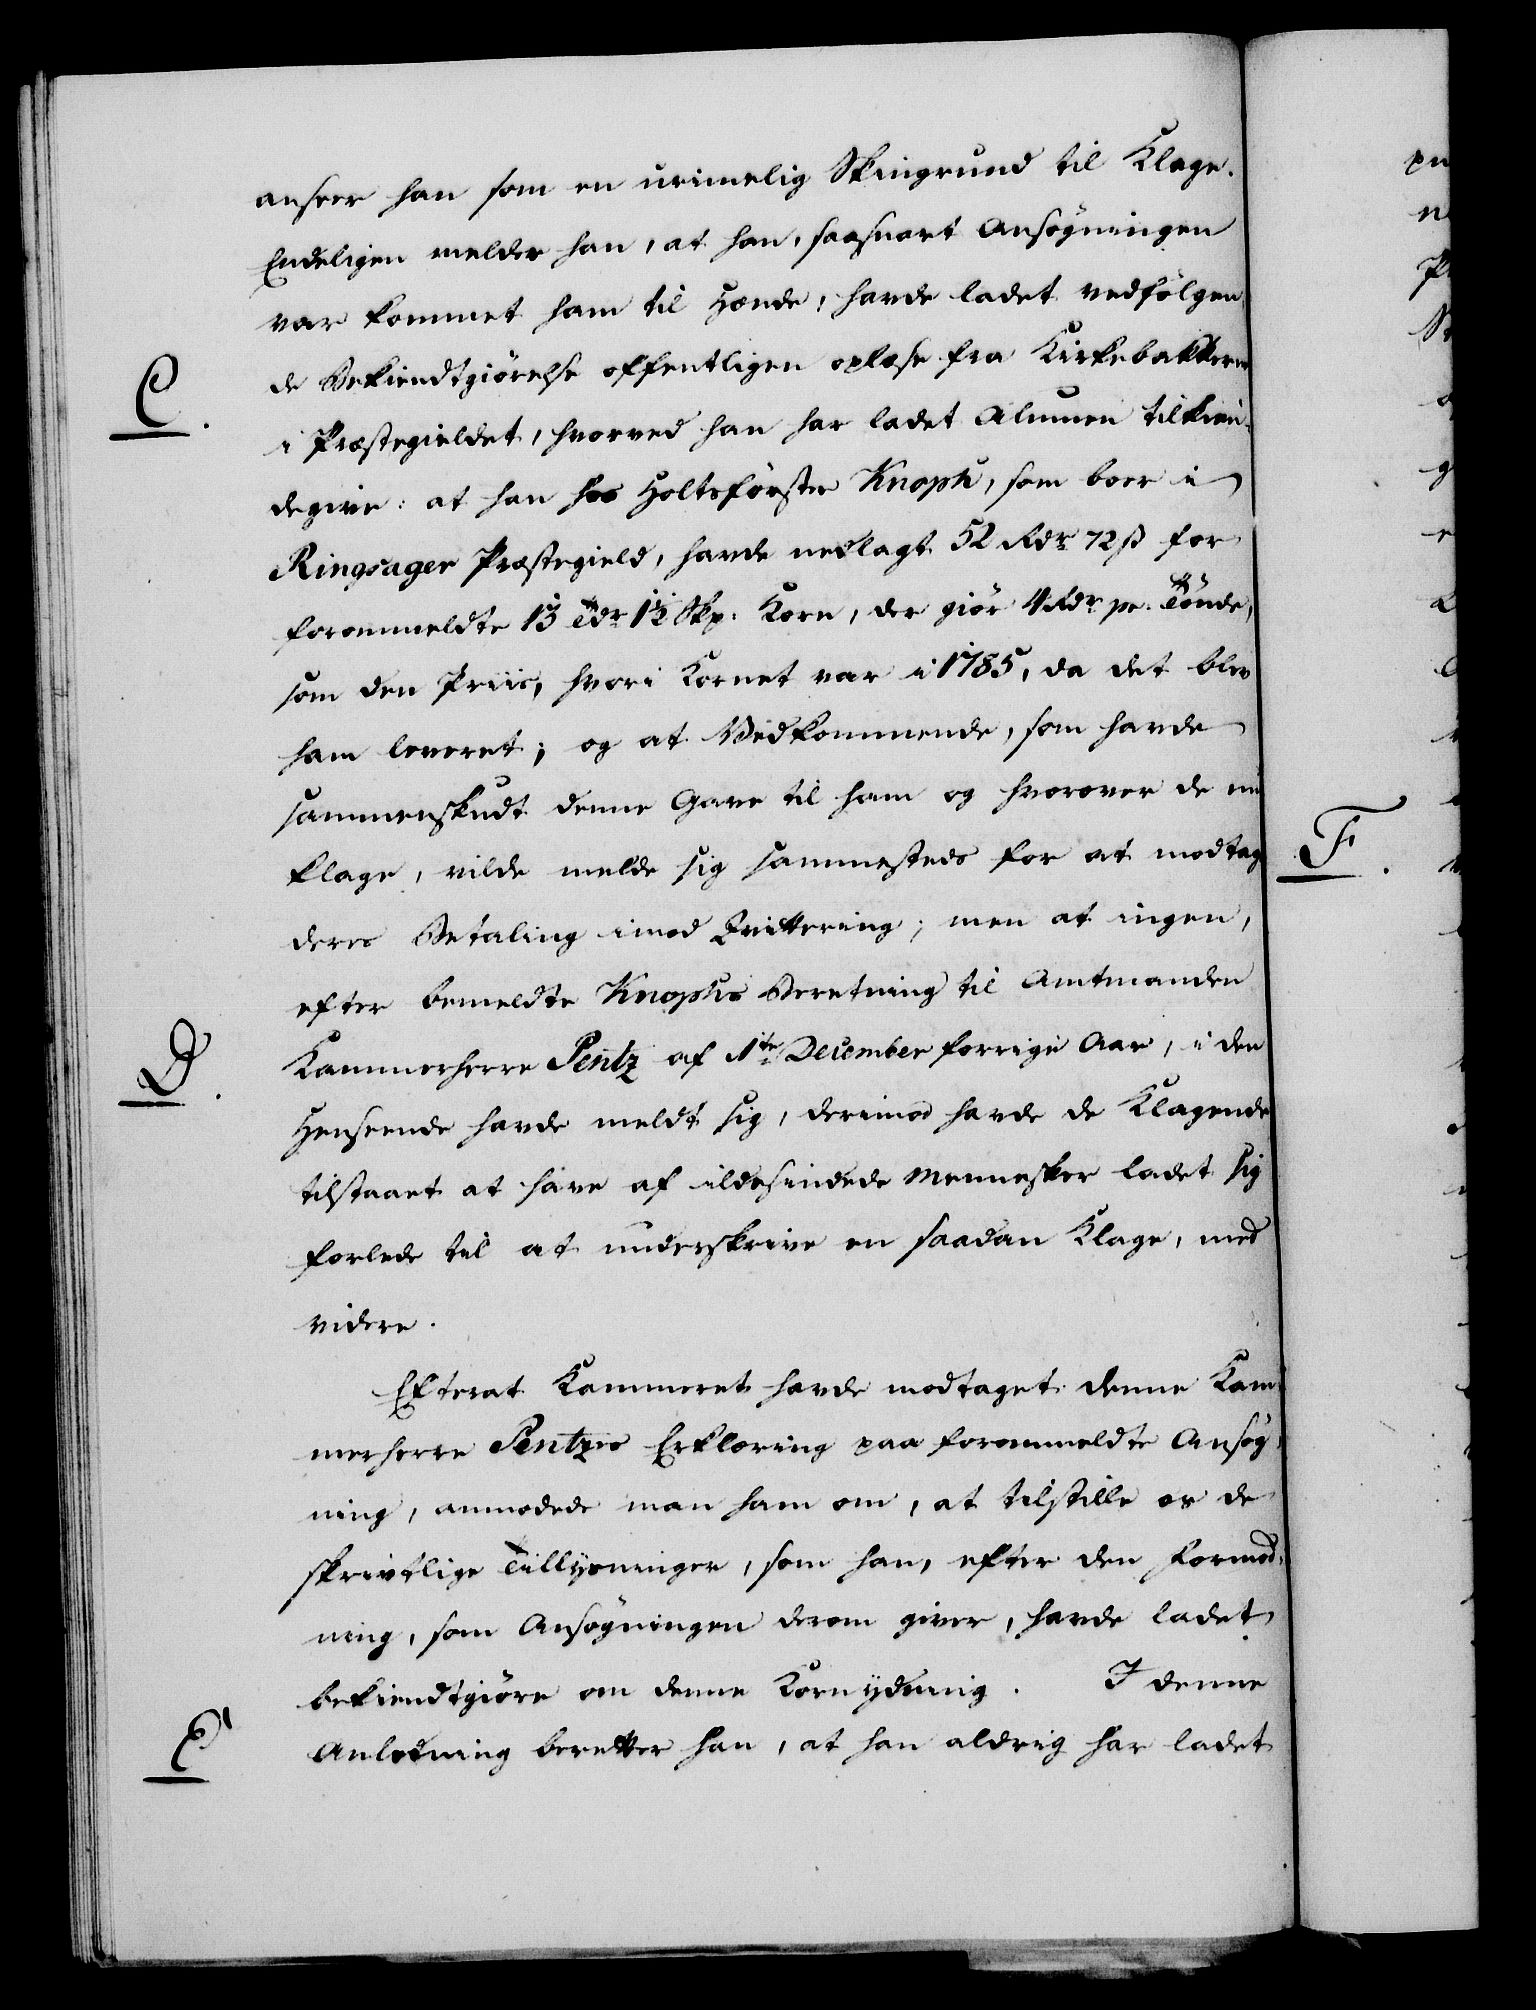 anseer han som en urimelig Skingrund til Klage.
Endeligen melder han, at han, saasnart Ansøgningen
var kommet ham til Hænde, havde ladet vedfølgen
C.
de Bekiendtgiørelse offentligen oplæse fra Kirkebakkerne
i Præstegieldet, hvorved han har ladet Almuen tilkien-
degive: at han hos Holtsførster Knoph, som boer i
Ringsager Præstegield, havde nedlagt 52 Rdr 72 ß for
forommeldte 13 Tdr 1½ Skp. Korn, der giør 4 Rdr pr. Tønde,
som den Priis, hvori Kornet var i 1785, da det blev
ham leveret; og at Vedkommende, som havde
sammenskudt denne Gave til ham og hvorover de nu
klage, vilde melde sig sammesteds for at modtag
deres Betaling imod Qvittering; men at ingen,
efter bemeldte Knophs Beretning til Amtmanden
D.
Kammerherre Pentz af 1te December forrige Aar, i den
Henseende havde meldt sig, derimod havde de Klagende
tilstaaet at have af ildesindede Mennesker ladet sig
forlede til at underskrive en saadan Klage, med
videre.
Efterat Kammeret havde modtaget denne Kam
merherre Pentzes Erklæring paa forommeldte Ansøg-
ning, anmodede man ham om, at tilstille os de
skrivtlige Tillysninger, som han, efter den Formod-
ning, som Ansøgningen derom giver, havde ladet
bekiendtgiøre om denne Kornydning. I denne
E
Anledning beretter han, at han aldrig har ladet
F.